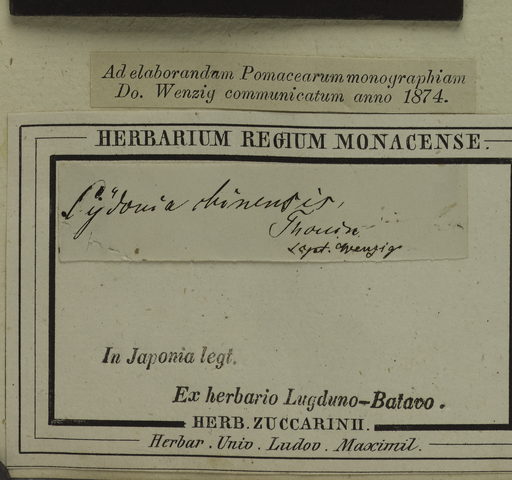 Ad elaborandam Pomacearum monographiam
Do. Wenzig communicatum anno 1874.
HERBARIUM REGIUM MONACENSE.
Cÿdonia chinensis,
Thouin
scpt. Wenzig
In Japonia legt.
Ex herbario Lugduno-Batavo.
HERB. ZUCCARINII.
Herbar. Univ. Ludov. Maximil.